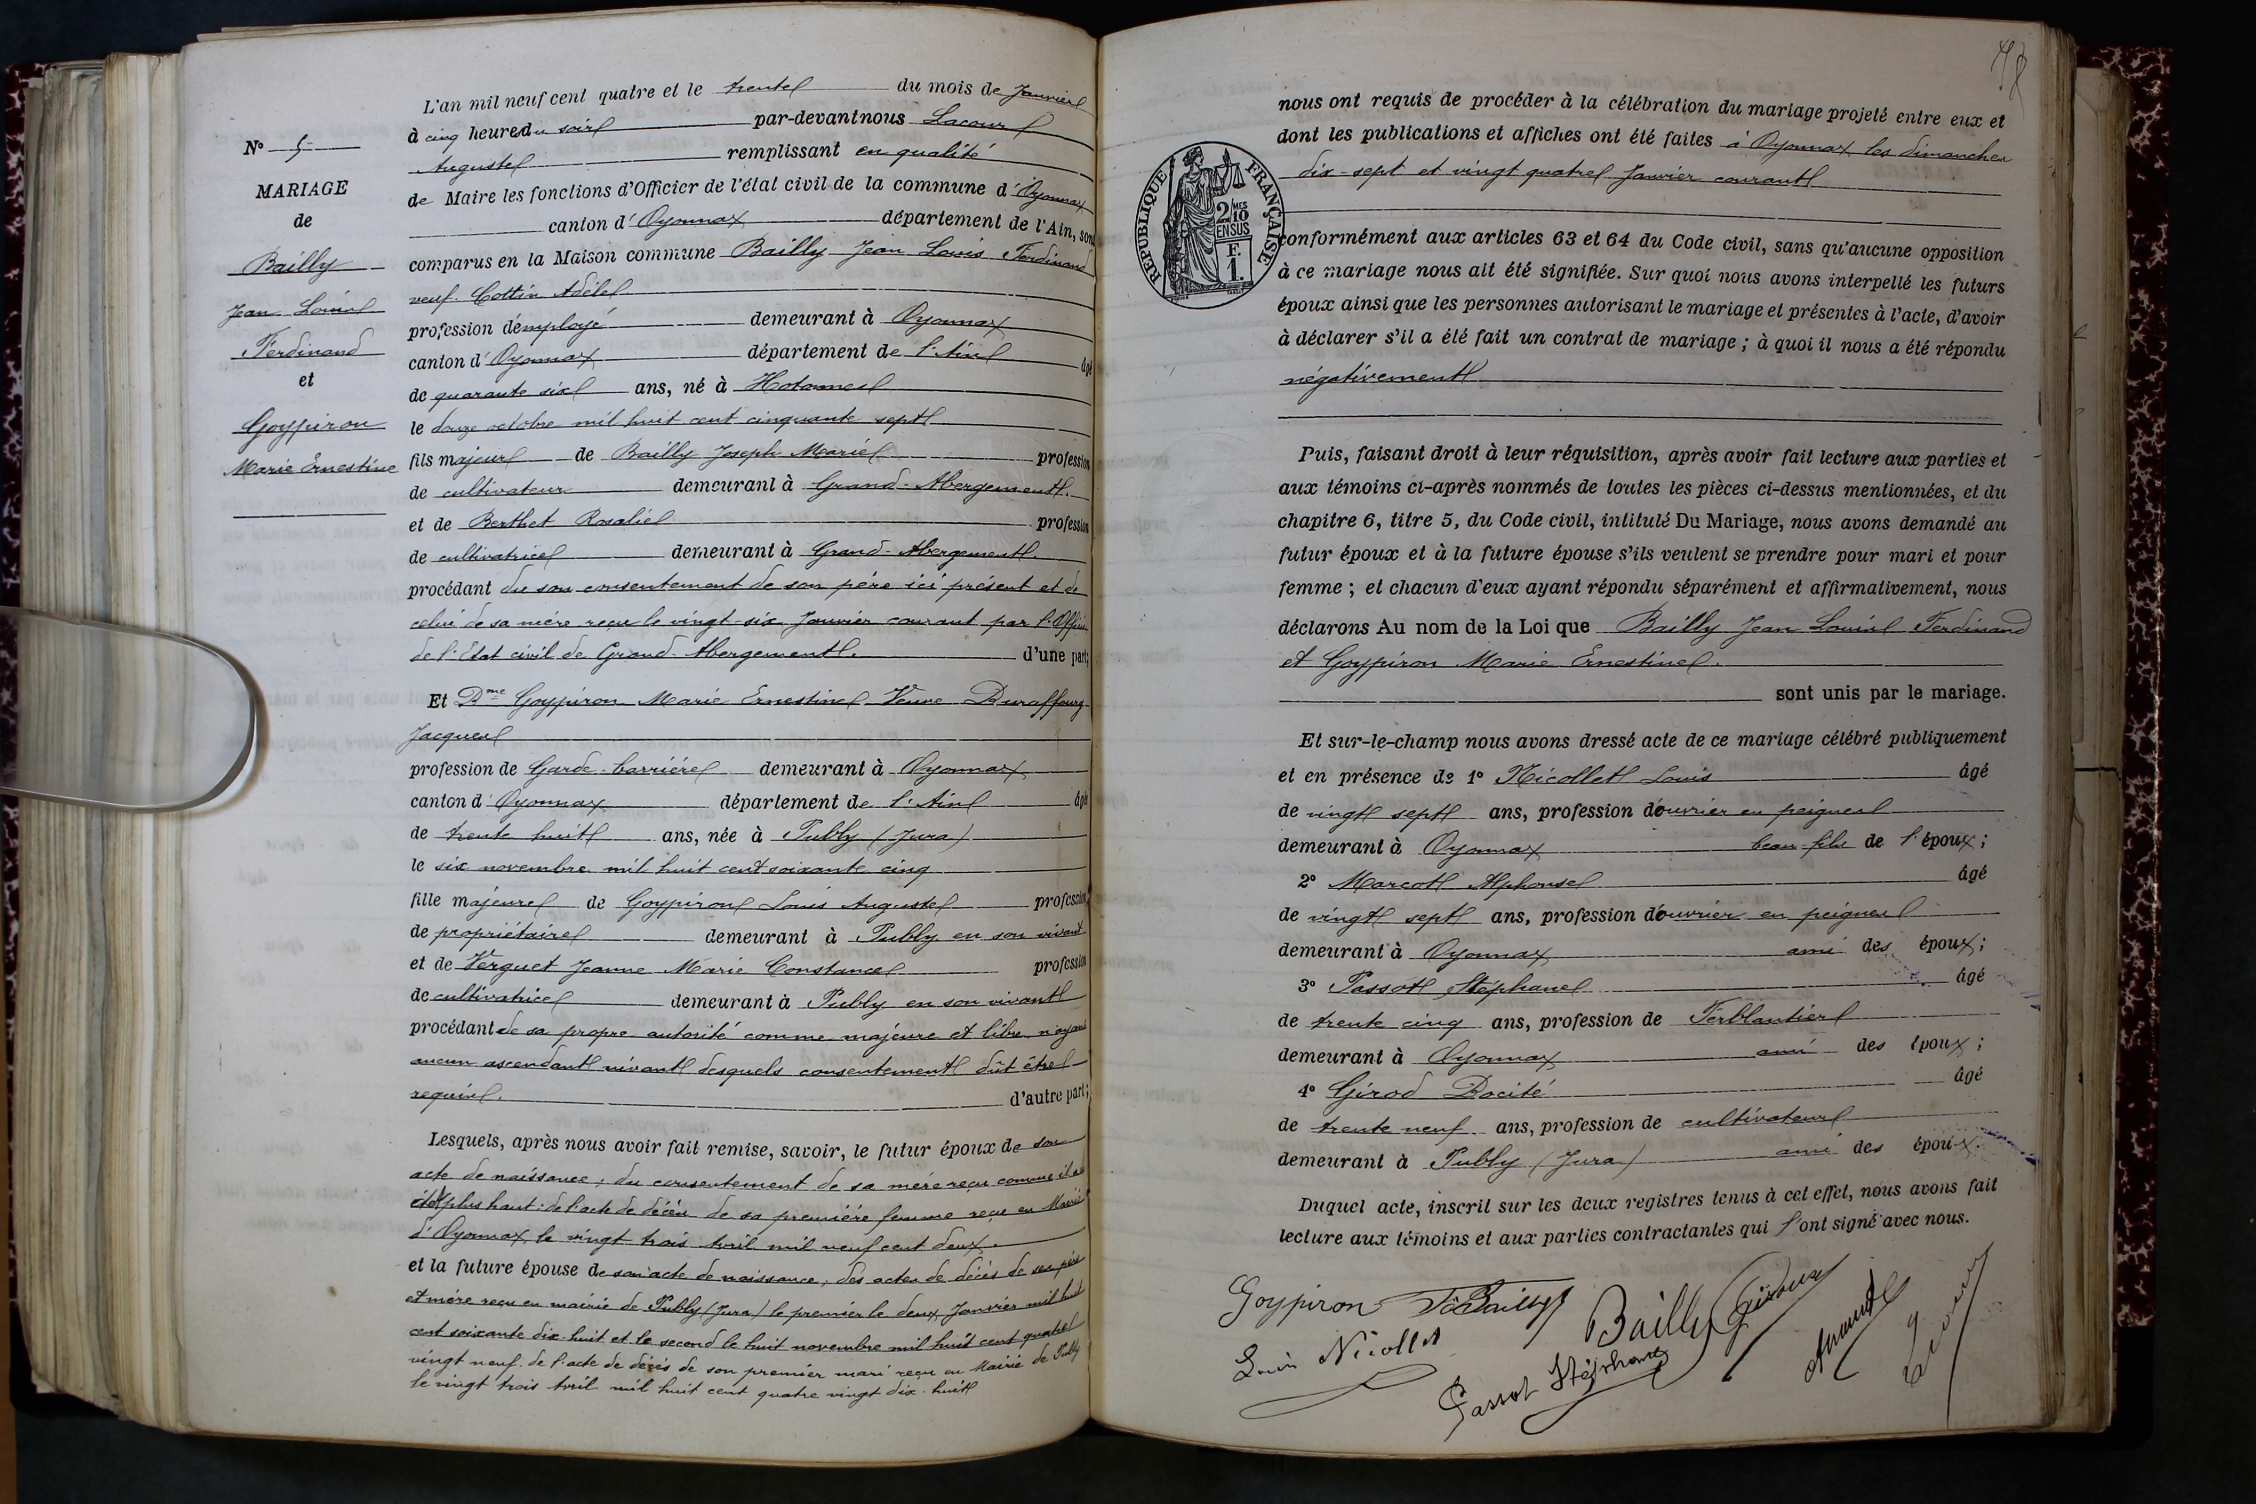 N° 5
MARIAGE
de
Bailly
Jean Louis
Ferdinand
et
Goypiron
Marie Ernestine
L'an mil neuf cent quatre et le trente du mois de Janvier
à cinq heures du soir par-devant nous Lacour
Auguste remplissant en qualité
de Maire les fonctions d'Officier de l'état civil de la commune d'Oyonnax
canton d'Oyonnax département de l'Ain, sont
comparus en la Maison commune Bailly Jean Louis Ferdinand
veuf Cottin Adèle
profession d'employé demeurant à Oyonnax
canton d'Oyonnax département de l'Ain âgé
de quarante six ans, né à Hotonnes
le douze octobre mil huit cent cinquante sept
fils majeur de Bailly Joseph Marie profession
de cultivateur demeurant à Grand-Abergement.
et de Berthet Rosalie profession
de cultivatrice demeurant à Grand-Abergement.
procédant du son consentement de son père ici présent et de
celui de sa mère reçu le vingt-six Janvier courant par l'Officier
de l'Etat civil de Grand-Abergement. d'une part;
Et Dme Goypiron Marie Ernestine Veuve Duraffourg
Jacques
profession de Garde-barrière demeurant à Oyonnax
canton d'Oyonnax département de l'Ain âgée
de trente huit ans, née à Publy (Jura)
le six novembre mil huit cent soixante cinq
fille majeure de Goypiron Louis Auguste profession
de propriétaire demeurant à Publy en son vivant
et de Verguet Jeanne Marie Constance profession
de cultivatrice demeurant à Publy en son vivant
procédant de sa propre autorité comme majeure et libre n'ayant
aucun ascendant vivant desquels consentement dût être
requis. d'autre part;
Lesquels, après nous avoir fait remise, savoir, le futur époux de son
acte de naissance; du consentement de sa mère reçu comme il est
dit plus haut: de l'acte de décès de sa première femme reçu en Mairie
d'Oyonnax le vingt trois Avril mil neuf cent deux.
et la future épouse de son acte de naissance; des actes de décès de ses père
et mère reçu en mairie de Publy (Jura) le premier le deux Janvier mil huit
cent soixante dix-huit et le second le huit novembre mil huit cent quatre
vingt neuf. de l'acte de décès de son premier mari reçu en Mairie de Publy
le vingt trois Avril mil huit cent quatre vingt dix-huit
48
nous ont requis de procéder à la célébration du mariage projeté entre eux et
dont les publications et affiches ont été faites à Oyonnax les dimanches
dix-sept et vingt quatre Janvier courant
RÉPUBLIQUE FRANÇAISE
2 MES
10
EN SUS
F.
1.
conformément aux articles 63 et 64 du Code civil, sans qu'aucune opposition
à ce mariage nous ait été signifiée. Sur quoi nous avons interpellé les futurs
époux ainsi que les personnes autorisant le mariage et présentes à l'acte, d'avoir
à déclarer s'il a été fait un contrat de mariage; à quoi il nous a été répondu
négativement
Puis, faisant droit à leur réquisition, après avoir fait lecture aux parties et
aux témoins ci-après nommés de toutes les pièces ci-dessus mentionnées, et du
chapitre 6, titre 5, du Code civil, intitulé Du Mariage, nous avons demandé au
futur époux et à la future épouse s'ils veulent se prendre pour mari et pour
femme; et chacun d'eux ayant répondu séparément et affirmativement, nous
déclarons Au nom de la Loi que Bailly Jean Louis Ferdinand
et Goypiron Marie Ernestine.
sont unis par le mariage.
Et sur-le-champ nous avons dressé acte de ce mariage célébré publiquement
et en présence de 1° Nicollet Louis âgé
de vingt sept ans, profession d'ouvrier en peignes
demeurant à Oyonnax beau-fils de l'époux;
2° Marcot Alphonse âgé
de vingt sept ans, profession d'ouvrier en peignes
demeurant à Oyonnax ami des époux;
3° Passot Stéphane âgé
de trente cinq ans, profession de Ferblantier
demeurant à Oyonnax ami des époux;
4° Girod Docité âgé
de trente neuf ans, profession de cultivateur
demeurant à Publy (Jura) ami des époux.
Duquel acte, inscrit sur les deux registres tenus à cet effet, nous avons fait
lecture aux témoins et aux parties contractantes qui l'ont signé avec nous.
Goypiron Bailly Bailly
Louis Nicollet
Passot Stéphane